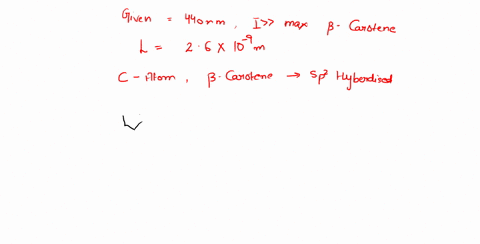 Given = 440nm, I>> max β-Carotene
L = 2.6 X 10⁻⁹m
C-Atom, β-Carotene → Sp² Hyberdised